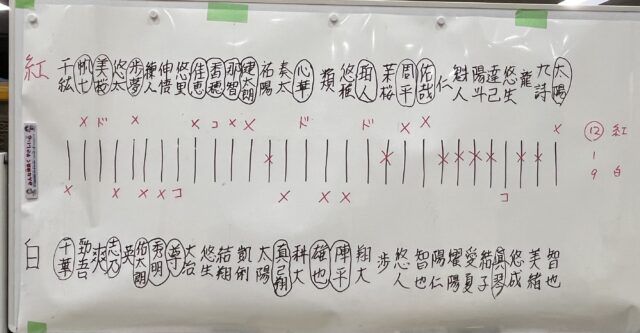 紅 千紘 帆士 美桜 悠太 歩夢 穣人 伸慎 悠里 佳恵 香穂 那智 健太朗 祐陽 奏太 心華 蓂 悠稚 珀人 茉桜 周平 佑哉 仁 魁人 陽斗 達己 悠生 龍 九詩 太陽
× ド × × コ × × ド ド × × ×
⑫ 紅
1
9 白
× × × × コ × × × コ
白 千華 勁吾 爽 志乃 英 佑太朗 秀明 尊 大治 悠生 結翔 凱俐 太陽 真己翔 科大 雄也 陣平 翔大 歩 悠人 智也 陽仁 耀陽 愛夏 結子 眞琴 悠成 美緒 智也